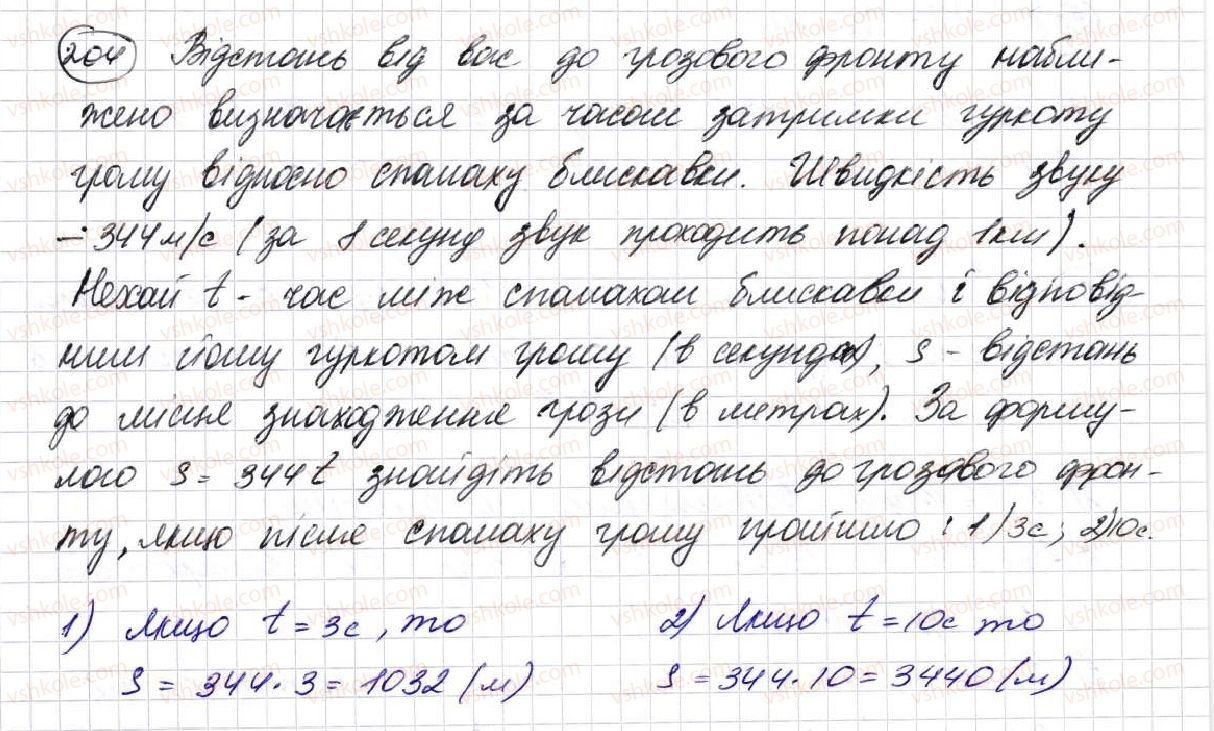 204 Відстань від вас до грозового фронту набли-
жено визначається за часом затримки гуркоту
грому відносно спалаху блискавки. Швидкість звуку
– 344 м/с (за 1 секунд звук проходить понад 1км).
Нехай t - час між спалахом блискавки і відповід-
ним йому гуркотом грому (в секундах), s - відстань
до місця знаходження грози (в метрах). За форму-
лою s = 344t знайдіть відстань до грозового фрон-
ту, якщо після спалаху грому пройшло : 1) 3с; 2) 10с.
1) Якщо t = 3с, то
2) Якщо t = 10с то
S = 344 · 3 = 1032 (м)
S = 344 · 10 = 3440 (м)